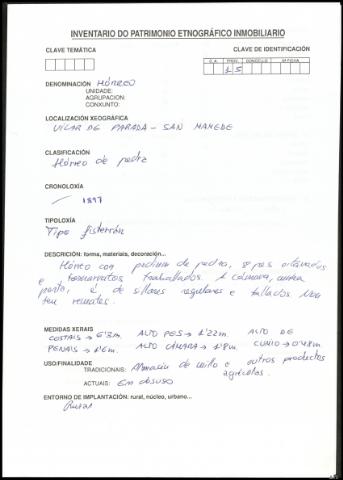 INVENTARIO DO PATRIMONIO ETNOGRÁFICO INMOBILIARIO
CLAVE TEMÁTICA CLAVE DE IDENTIFICACIÓN
C.A. PROV. CONCELLO Nº FICHA
1 5
DENOMINACIÓN HÓRREO
UNIDADE:
AGRUPACION:
CONXUNTO:
LOCALIZACIÓN XEOGRÁFICA
VILAR DE PARADA - SAN MAMEDE
CLASIFICACIÓN
Hórreo de pedra
CRONOLOXÍA
1897
TIPOLOXÍA
Tipo fisterrán
DESCRICIÓN: forma, materiais, decoración...
Hórreo con de pedra, 8 pes
e tornarratos traballados. A cámara,
porta, é de sillares regulares e tallados. Non
ten remates.
MEDIDAS XERAIS
COSTAIS → 6'3m. ALTO PES → 1'22m. ALTO DE
PENAIS → 1'6m. ALTO CÁMARA → 1'8m. CUMIO → 0'48m
USO/FINALIDADE
TRADICIONAIS: Almacén de millo e outros productos
agrícolas.
ACTUAIS: En desuso
ENTORNO DE IMPLANTACIÓN: rural, núcleo, urbano...
Rural